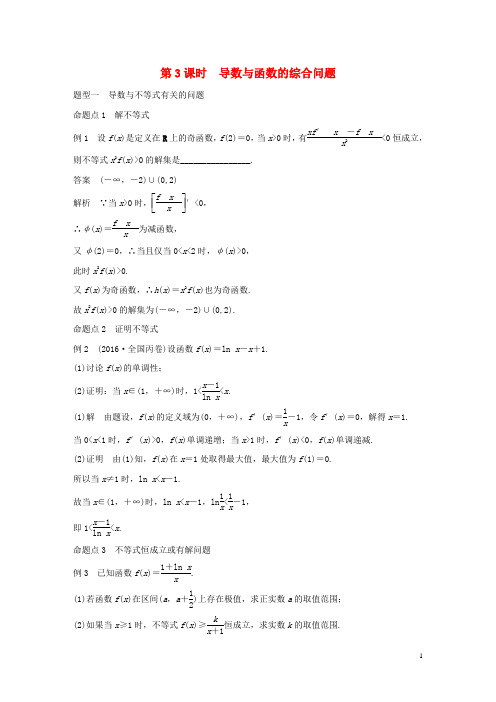 第3课时 导数与函数的综合问题
题型一 导数与不等式有关的问题
命题点1 解不等式
例1 设f(x)是定义在R上的奇函数，f(2)=0，当x>0时，有\frac{xf′ x -f x}{x²}<0恒成立，
则不等式x²f(x)>0的解集是________________.
答案 (-∞，-2)∪(0,2)
解析 ∵当x>0时，[\frac{f x}{x}]′<0，
∴φ(x)=\frac{f x}{x}为减函数，
又φ(2)=0，∴当且仅当0<x<2时，φ(x)>0，
此时x²f(x)>0.
又f(x)为奇函数，∴h(x)=x²f(x)也为奇函数.
故x²f(x)>0的解集为(-∞，-2)∪(0,2).
命题点2 证明不等式
例2 (2016·全国丙卷)设函数f(x)=ln x-x+1.
(1)讨论f(x)的单调性；
(2)证明：当x∈(1，+∞)时，1<\frac{x-1}{ln x}<x.
(1)解 由题设，f(x)的定义域为(0，+∞)，f′(x)=\frac{1}{x}-1，令f′(x)=0，解得x=1.
当0<x<1时，f′(x)>0，f(x)单调递增；当x>1时，f′(x)<0，f(x)单调递减.
(2)证明 由(1)知，f(x)在x=1处取得最大值，最大值为f(1)=0.
所以当x≠1时，ln x<x-1.
故当x∈(1，+∞)时，ln x<x-1，ln\frac{1}{x}<\frac{1}{x}-1，
即1<\frac{x-1}{ln x}<x.
命题点3 不等式恒成立或有解问题
例3 已知函数f(x)=\frac{1+ln x}{x}.
(1)若函数f(x)在区间(a，a+\frac{1}{2})上存在极值，求正实数a的取值范围；
(2)如果当x≥1时，不等式f(x)≥\frac{k}{x+1}恒成立，求实数k的取值范围.
1